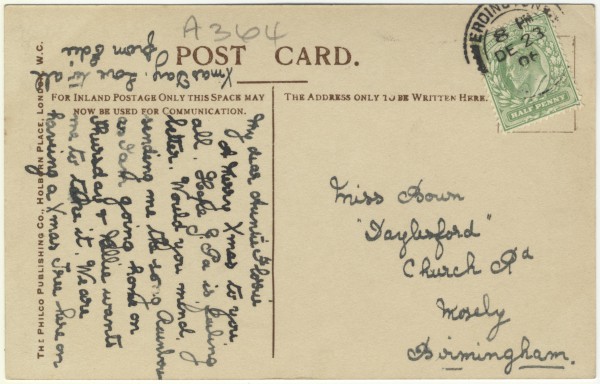 A364
POST CARD.
FOR INLAND POSTAGE ONLY THIS SPACE MAY
NOW BE USED FOR COMMUNICATION.
THE ADDRESS ONLY TO BE WRITTEN HERE.
THE PHILCO PUBLISHING CO., HOLBORN PLACE, LONDON, W.C.
ERDINGTON
8 PM
DE 23
06
HALF PENNY
My dear Auntie Florrie
A Merry Xmas to you
all. Hope G. Pa is feeling
better. Would you mind
sending me the song Rainbow
as I am going home on
Thursday & Nellie wants
me to take it. We are
having a Xmas Tree here on
Xmas Day. Love to all
from Edie
Miss Bown
"Daylesford"
Church Rd
Mosely
Birmingham.